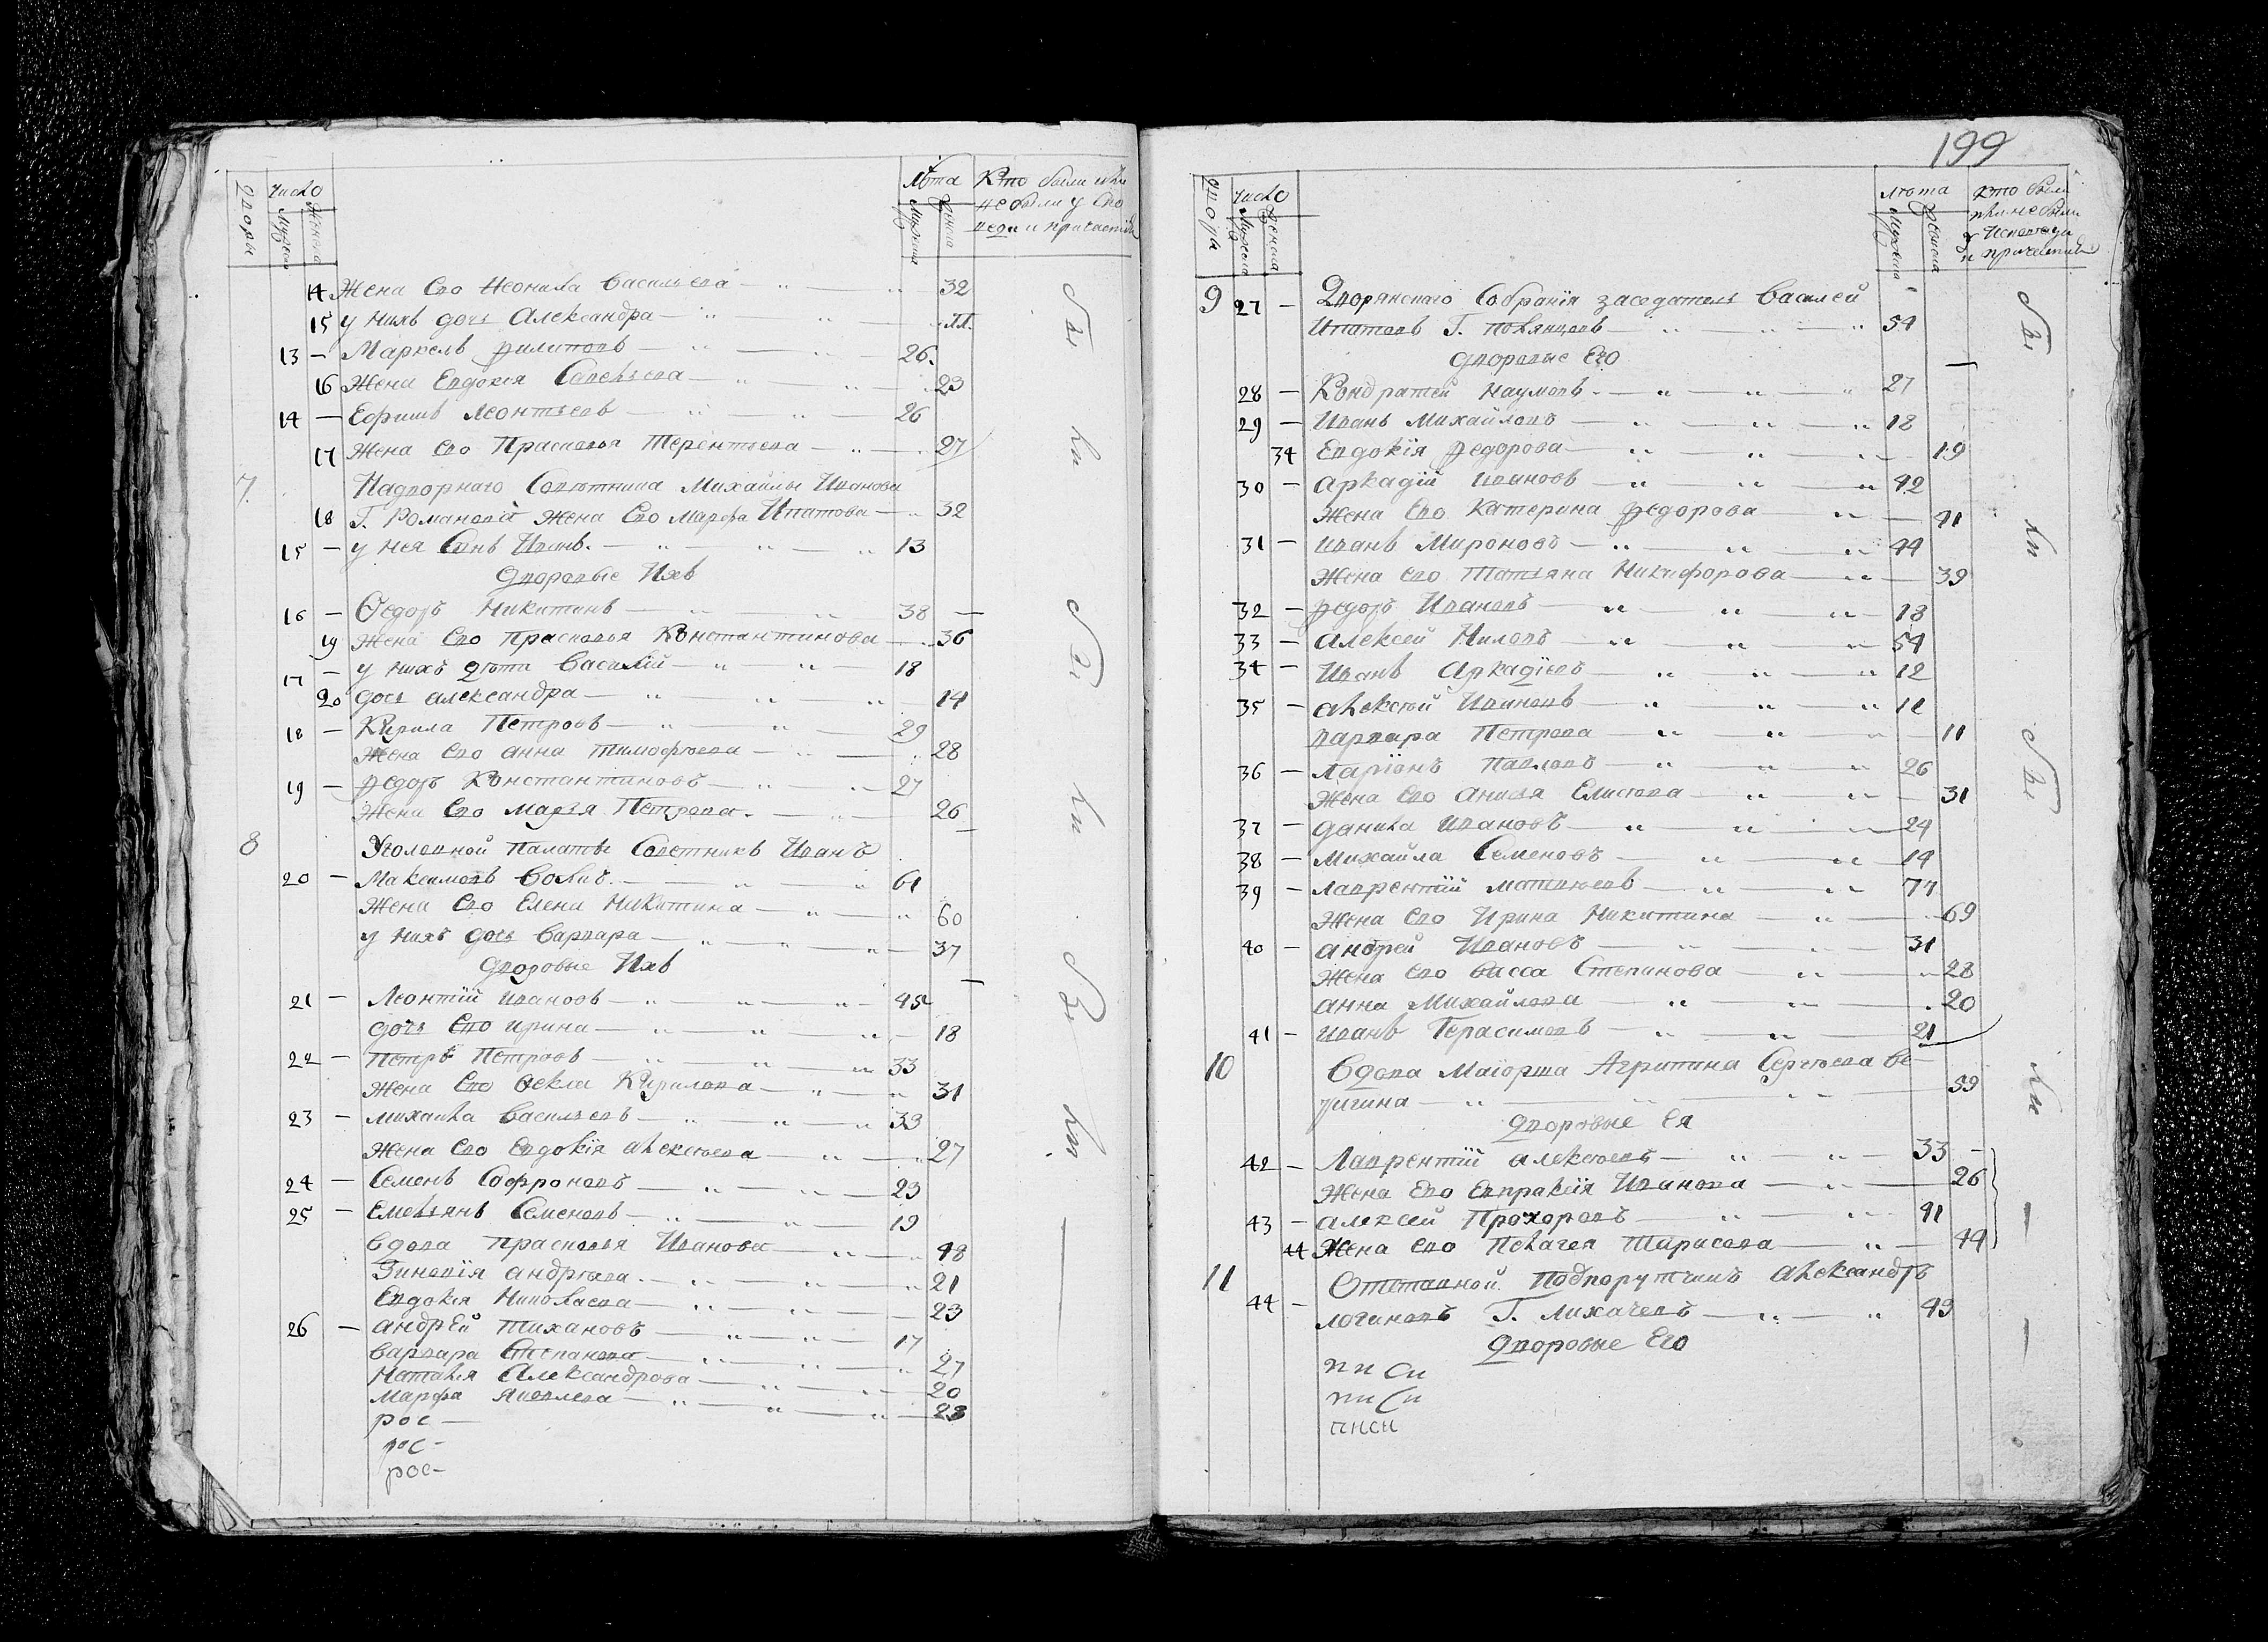 Дворы Число Мужеска Женска Лѣта Мужеска Женска Кто были или
не были у Испо
веди и причастія
14 Жена Ево Неонила Васильева 32
15 у нихъ дочь Александра
13 — Маркелъ Филиповъ 26
16 Жена Евдокея Савельева 23
14 — Ефимъ Леонтьевъ 26
17 Жена Ево Прасковья Терентьева 27
7 Надворнаго Совѣтника Михайлы Иванова
18 Г. Романова Жена Ево Марфа Ипатова 32
15 — у нея Сынъ Иванъ 13
дворовые Ихъ
16 — Ѳедоръ Никитинъ 38
19 Жена Ево Прасковья Константинова 36
17 — у нихъ дѣти Василій 18
20 дочь александра 14
18 — Кирила Петровъ 29
Жена Ево анна Тимофѣева 28
19 — Федоръ Константиновъ 27
Жена Ево Марья Петрова 26
8 Уголовной Палаты Советникъ Иванъ
20 — Максимовъ 61
Жена Ево Елена Никитина 60
у нихъ дочь Варвара 37
дворовые Ихъ
21 — Леонтій ивановъ 45
дочь Ево ирина 18
22 — Петръ Петровъ 33
Жена Ево Ѳекла Кирилова 31
23 — михаила Васильевъ 33
Жена Ево Евдокія алексѣева 27
24 — Семенъ Софроновъ 23
25 — Емельянъ Семеновъ 19
Вдова Прасковья Иванова 48
Зиновія андрѣева 21
Евдокея Николаева 23
26 — андрей тихановъ 17
Варвара Степанова 27
Наталья Александрова 20
Марфа Яковлева 23
рос —
рос —
рос —
Бы ли Бы ли Бы ли
199
Дворы Число Мужеска Женска Лѣта Мужеска Женска Кто были
или не были
у Исповеди
и причастія
9 27 — Дворянскаго Собранія заседатель Василей
Ипатовъ Г. 54
дворовые Его
28 — Кондратей Наумовъ 27
29 — Иванъ Михайловъ 18
34 Евдокія Федорова 19
30 — аркадій ивановъ 42
Жена Ево Катерина Федорова 41
31 — иванъ Мироновъ 44
Жена Ево Татьяна Никифорова 39
32 — Федоръ Ивановъ 18
33 — алексей Ниловъ 54
34 — Иванъ Аркадіевъ 12
35 — алексѣй Ивановъ
варвара Петрова 11
36 — Ларіонъ Павловъ 26
Жена Ево Анисья Елисѣева 31
37 — данила ивановъ 24
38 — михайла Семеновъ 14
39 — лаврентій матвѣевъ 77
Жена Ево Ирина Никитина 69
40 — андрей Ивановъ 31
Жена Ево Васса Степанова 28
анна Михайлова 20
41 — иванъ Герасимовъ 21
10 Вдова Маіорша Агрипина Сергѣева
59
дворовые Ея
42 — Лаврентій алексѣевъ 33
Жена Ево Евпраксія Иванова 26
43 — алексей Прохоровъ 41
44 Жена Ево Пелагея Тарасова 44
11 Отставной Подпорутчикъ александръ
44 — логиновъ Г. лихачевъ 49
дворовые Его
пи Си
пи Си
писи
Бы ли Бы ли